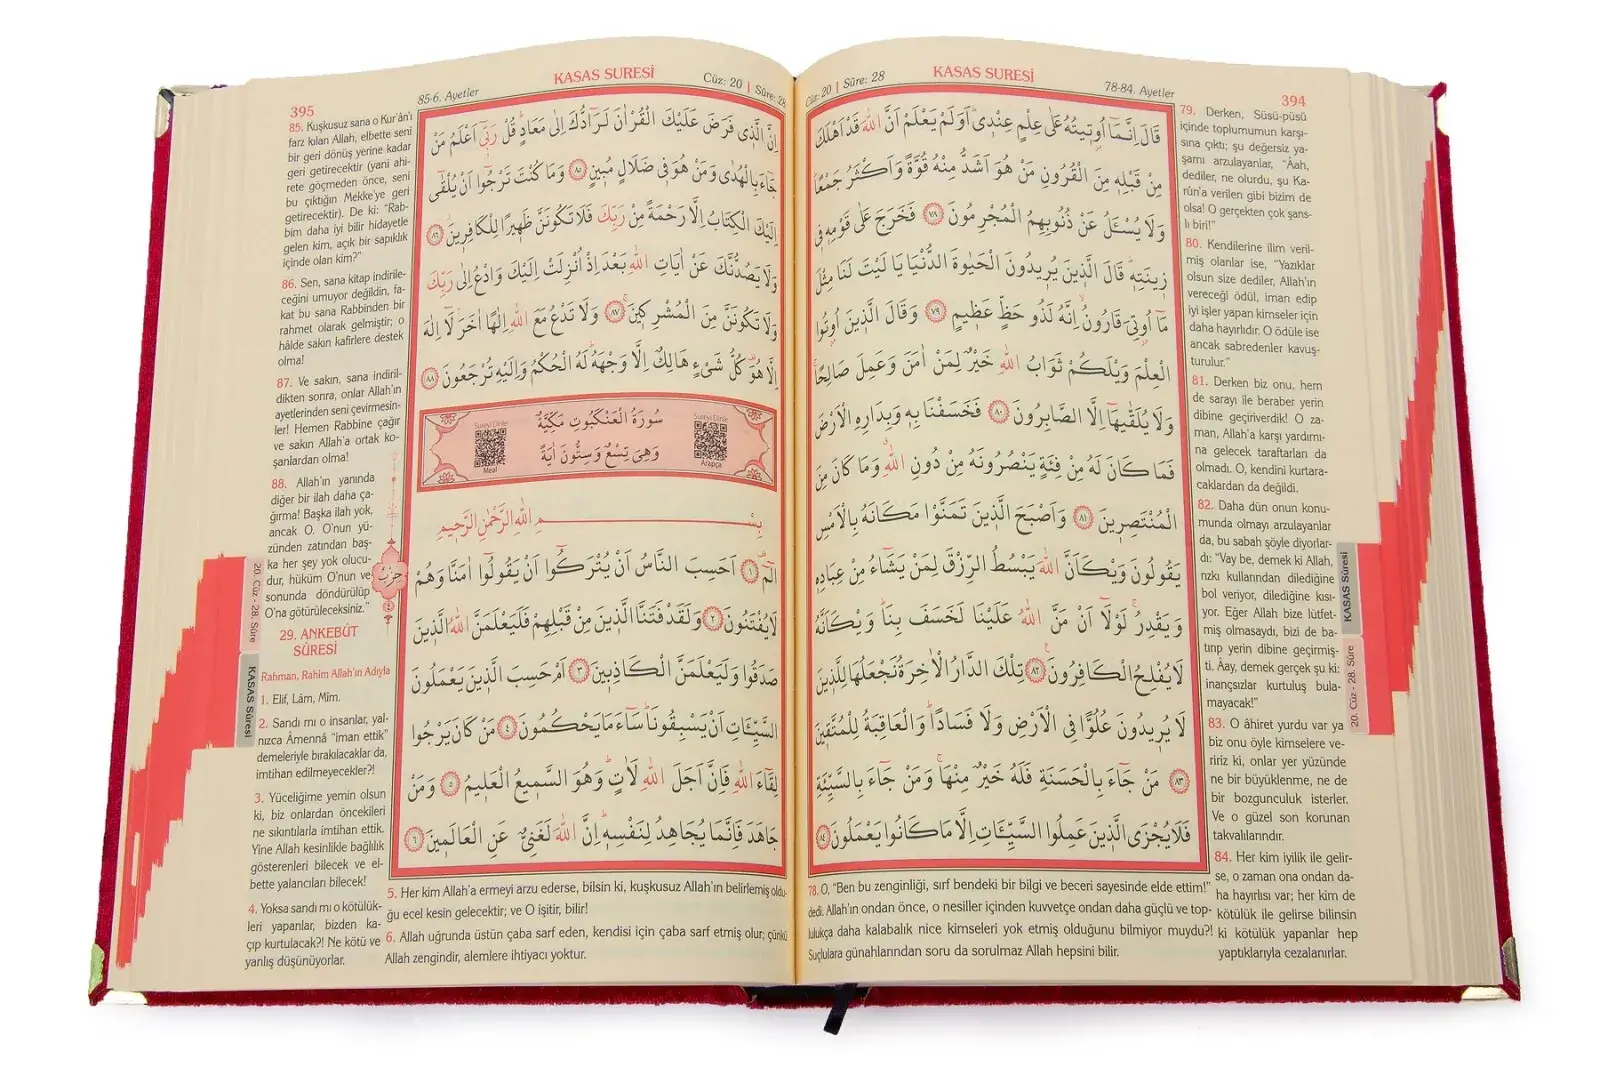 394
KASAS SURESİ
Cüz: 20 | Sûre: 28
78-84. Ayetler
قَالَ اِنَّمَٓا اُو۫ت۪يتُهُ عَلٰى عِلْمٍ عِنْد۪يۜ اَوَلَمْ يَعْلَمْ اَنَّ اللّٰهَ قَدْ اَهْلَكَ
مِنْ قَبْلِه۪ مِنَ الْقُرُونِ مَنْ هُوَ اَشَدُّ مِنْهُ قُوَّةً وَاَكْثَرُ جَمْعًاۜ
وَلَا يُسْـَٔلُ عَنْ ذُنُوبِهِمُ الْمُجْرِمُونَ ﴿٧٨﴾ فَخَرَجَ عَلٰى قَوْمِه۪ ف۪ي
ز۪ينَتِه۪ۜ قَالَ الَّذ۪ينَ يُر۪يدُونَ الْحَيٰوةَ الدُّنْيَا يَا لَيْتَ لَنَا مِثْلَ
مَٓا اُو۫تِيَ قَارُونُۙ اِنَّهُ لَذُو حَظٍّ عَظ۪يمٍ ﴿٧٩﴾ وَقَالَ الَّذ۪ينَ اُو۫تُوا
الْعِلْمَ وَيْلَكُمْ ثَوَابُ اللّٰهِ خَيْرٌ لِمَنْ اٰمَنَ وَعَمِلَ صَالِحًاۚ
وَلَا يُلَقّٰيهَٓا اِلَّا الصَّابِرُونَ ﴿٨٠﴾ فَخَسَفْنَا بِه۪ وَبِدَارِهِ الْاَرْضَ
فَمَا كَانَ لَهُ مِنْ فِئَةٍ يَنْصُرُونَهُ مِنْ دُونِ اللّٰهِۗ وَمَا كَانَ مِنَ
الْمُنْتَصِر۪ينَ ﴿٨١﴾ وَاَصْبَحَ الَّذ۪ينَ تَمَنَّوْا مَكَانَهُ بِالْاَمْسِ
يَقُولُونَ وَيْكَاَنَّ اللّٰهَ يَبْسُطُ الرِّزْقَ لِمَنْ يَشَٓاءُ مِنْ عِبَادِه۪
وَيَقْدِرُۚ لَوْلَٓا اَنْ مَنَّ اللّٰهُ عَلَيْنَا لَخَسَفَ بِنَاۜ وَيْكَاَنَّهُ
لَا يُفْلِحُ الْكَافِرُونَ ﴿٨٢﴾ تِلْكَ الدَّارُ الْاٰخِرَةُ نَجْعَلُهَا لِلَّذ۪ينَ
لَا يُر۪يدُونَ عُلُوًّا فِي الْاَرْضِ وَلَا فَسَادًاۜ وَالْعَاقِبَةُ لِلْمُتَّق۪ينَ
﴿٨٣﴾ مَنْ جَٓاءَ بِالْحَسَنَةِ فَلَهُ خَيْرٌ مِنْهَاۚ وَمَنْ جَٓاءَ بِالسَّيِّئَةِ
فَلَا يُجْزَى الَّذ۪ينَ عَمِلُوا السَّيِّـَٔاتِ اِلَّا مَا كَانُوا يَعْمَلُونَ ﴿٨٤﴾
78. O, “Ben bu zenginliği, sırf bendeki bir bilgi ve beceri sayesinde elde ettim!”
dedi. Allah'ın ondan önce, o nesiller içinden kuvvetçe ondan daha güçlü ve top-
lulukça daha kalabalık nice kimseleri yok etmiş olduğunu bilmiyor muydu?!
Suçlulara günahlarından soru da sorulmaz Allah hepsini bilir.
79. Derken, Süsü-püsü
içinde toplumumun karşı-
sına çıktı; şu değersiz ya-
şamı arzulayanlar, “Âah,
dediler, ne olurdu, şu Ka-
rûn'a verilen gibi bizim de
olsa! O gerçekten çok şans-
lı biri!”
80. Kendilerine ilim veril-
miş olanlar ise, “Yazıklar
olsun size dediler, Allah'ın
vereceği ödül, iman edip
iyi işler yapan kimseler için
daha hayırlıdır. O ödüle ise
ancak sabredenler kavuş-
turulur.”
81. Derken biz onu, hem
de sarayı ile beraber yerin
dibine geçiriverdik! O za-
man, Allah'a karşı yardımı-
na gelecek taraftarları da
olmadı. O, kendini kurtara-
caklardan da değildi.
82. Daha dün onun konu-
munda olmayı arzulayanlar
da, bu sabah şöyle diyorlar-
dı: “Vay be, demek ki Allah,
rızkı kullarından dilediğine
bol veriyor, dilediğine kısı-
yor. Eğer Allah bize lütfet-
miş olmasaydı, bizi de ba-
tırıp yerin dibine geçirmiş-
ti. Âay, demek gerçek şu ki:
inançsızlar kurtuluş bula-
mayacak!”
83. O âhiret yurdu var ya
biz onu öyle kimselere ve-
ririz ki, onlar yer yüzünde
ne bir büyüklenme, ne de
bir bozgunculuk isterler.
Ve o güzel son korunan
takvalılarındır.
84. Her kim iyilik ile gelir-
se, o zaman ona ondan da-
ha hayırlısı var; her kim de
kötülük ile gelirse bilinsin
ki kötülük yapanlar hep
yaptıklarıyla cezalanırlar.
KASAS Sûresi
20. Cüz - 28. Sûre
395
KASAS SURESİ
Cüz: 20 | Sûre: 28
85-6. Ayetler
اِنَّ الَّذ۪ي فَرَضَ عَلَيْكَ الْقُرْاٰنَ لَرَٓادُّكَ اِلٰى مَعَادٍۜ قُلْ رَبّ۪ٓي اَعْلَمُ مَنْ
جَٓاءَ بِالْهُدٰى وَمَنْ هُوَ ف۪ي ضَلَالٍ مُب۪ينٍ ﴿٨٥﴾ وَمَا كُنْتَ تَرْجُٓوا اَنْ يُلْقٰٓى
اِلَيْكَ الْكِتَابُ اِلَّا رَحْمَةً مِنْ رَبِّكَ فَلَا تَكُونَنَّ ظَه۪يرًا لِلْكَافِر۪ينَۘ ﴿٨٦﴾
وَلَا يَصُدُّنَّكَ عَنْ اٰيَاتِ اللّٰهِ بَعْدَ اِذْ اُنْزِلَتْ اِلَيْكَ وَادْعُ اِلٰى رَبِّكَ
وَلَا تَكُونَنَّ مِنَ الْمُشْرِك۪ينَۚ ﴿٨٧﴾ وَلَا تَدْعُ مَعَ اللّٰهِ اِلٰهًا اٰخَرَۢ لَٓا اِلٰهَ
اِلَّا هُوَ۠ كُلُّ شَيْءٍ هَالِكٌ اِلَّا وَجْهَهُۜ لَهُ الْحُكْمُ وَاِلَيْهِ تُرْجَعُونَ ﴿٨٨﴾
سُورَةُ الْعَنْكَبُوتِ مَكِّيَّةٌ
وَهِيَ تِسْعٌ وَسِتُّونَ اٰيَةً
Sureyi Dinle
Arapça
Sureyi Dinle
Meal
بِسْمِ اللّٰهِ الرَّحْمٰنِ الرَّح۪يمِ
الٓمٓۜ ﴿١﴾ اَحَسِبَ النَّاسُ اَنْ يُتْرَكُٓوا اَنْ يَقُولُٓوا اٰمَنَّا وَهُمْ
لَا يُفْتَنُونَ ﴿٢﴾ وَلَقَدْ فَتَنَّا الَّذ۪ينَ مِنْ قَبْلِهِمْ فَلَيَعْلَمَنَّ اللّٰهُ الَّذ۪ينَ
صَدَقُوا وَلَيَعْلَمَنَّ الْكَاذِب۪ينَ ﴿٣﴾ اَمْ حَسِبَ الَّذ۪ينَ يَعْمَلُونَ
السَّيِّـَٔاتِ اَنْ يَسْبِقُونَاۜ سَٓاءَ مَا يَحْكُمُونَ ﴿٤﴾ مَنْ كَانَ يَرْجُوا
لِقَٓاءَ اللّٰهِ فَاِنَّ اَجَلَ اللّٰهِ لَاٰتٍۜ وَهُوَ السَّم۪يعُ الْعَل۪يمُ ﴿٥﴾ وَمَنْ
جَاهَدَ فَاِنَّمَا يُجَاهِدُ لِنَفْسِه۪ۜ اِنَّ اللّٰهَ لَغَنِيٌّ عَنِ الْعَالَم۪ينَ ﴿٦﴾
85. Kuşkusuz sana o Kur'ân'ı
farz kılan Allah, elbette seni
bir geri dönüş yerine kadar
geri getirecektir (yani ahi-
rete göçmeden önce, seni
bu çıktığın Mekke'ye geri
getirecektir). De ki: “Rab-
bim daha iyi bilir hidayetle
gelen kim, açık bir sapıklık
içinde olan kim?”
86. Sen, sana kitap indirile-
ceğini umuyor değildin, fa-
kat bu sana Rabbinden bir
rahmet olarak gelmiştir; o
hâlde sakın kafirlere destek
olma!
87. Ve sakın, sana indiril-
dikten sonra, onlar Allah'ın
ayetlerinden seni çevirmesin-
ler! Hemen Rabbine çağır
ve sakın Allah'a ortak ko-
şanlardan olma!
88. Allah'ın yanında
diğer bir ilah daha ça-
ğırma! Başka ilah yok,
ancak O. O'nun yü-
zünden zatından baş-
ka her şey yok olucu-
dur, hüküm O'nun ve
sonunda döndürülüp
O'na götürüleceksiniz.”
29. ANKEBÛT
SÛRESİ
Rahman, Rahim Allah'ın Adıyla
1. Elif, Lâm, Mîm.
2. Sandı mı o insanlar, yal-
nızca Âmennâ “iman ettik”
demeleriyle bırakılacaklar da,
imtihan edilmeyecekler?!
3. Yüceliğime yemin olsun
ki, biz onlardan öncekileri
ne sıkıntılarla imtihan ettik.
Yine Allah kesinlikle bağlılık
gösterenleri bilecek ve el-
bette yalancıları bilecek!
4. Yoksa sandı mı o kötülük-
leri yapanlar, bizden ka-
çıp kurtulacak?! Ne kötü ve
yanlış düşünüyorlar.
5. Her kim Allah'a ermeyi arzu ederse, bilsin ki, kuşkusuz Allah'ın belirlemiş oldu-
ğu ecel kesin gelecektir; ve O işitir, bilir!
6. Allah uğrunda üstün çaba sarf eden, kendisi için çaba sarf etmiş olur; çünkü
Allah zengindir, alemlere ihtiyacı yoktur.
حزب
٤
20. Cüz - 28. Sûre
KASAS Sûresi